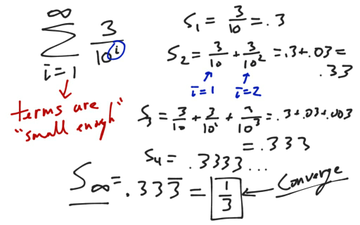 ∞
∑ 3/10^i
i=1
terms are
"small enough"
S₁ = 3/10 = .3
S₂ = 3/10 + 3/10² = .3+.03 =
.33
i=1 i=2
S₃ = 3/10 + 3/10² + 3/10³ = .3+.03+.003
= .333
S₄ = .3333...
S∞ = .333̅ = 1/3 ← Converge